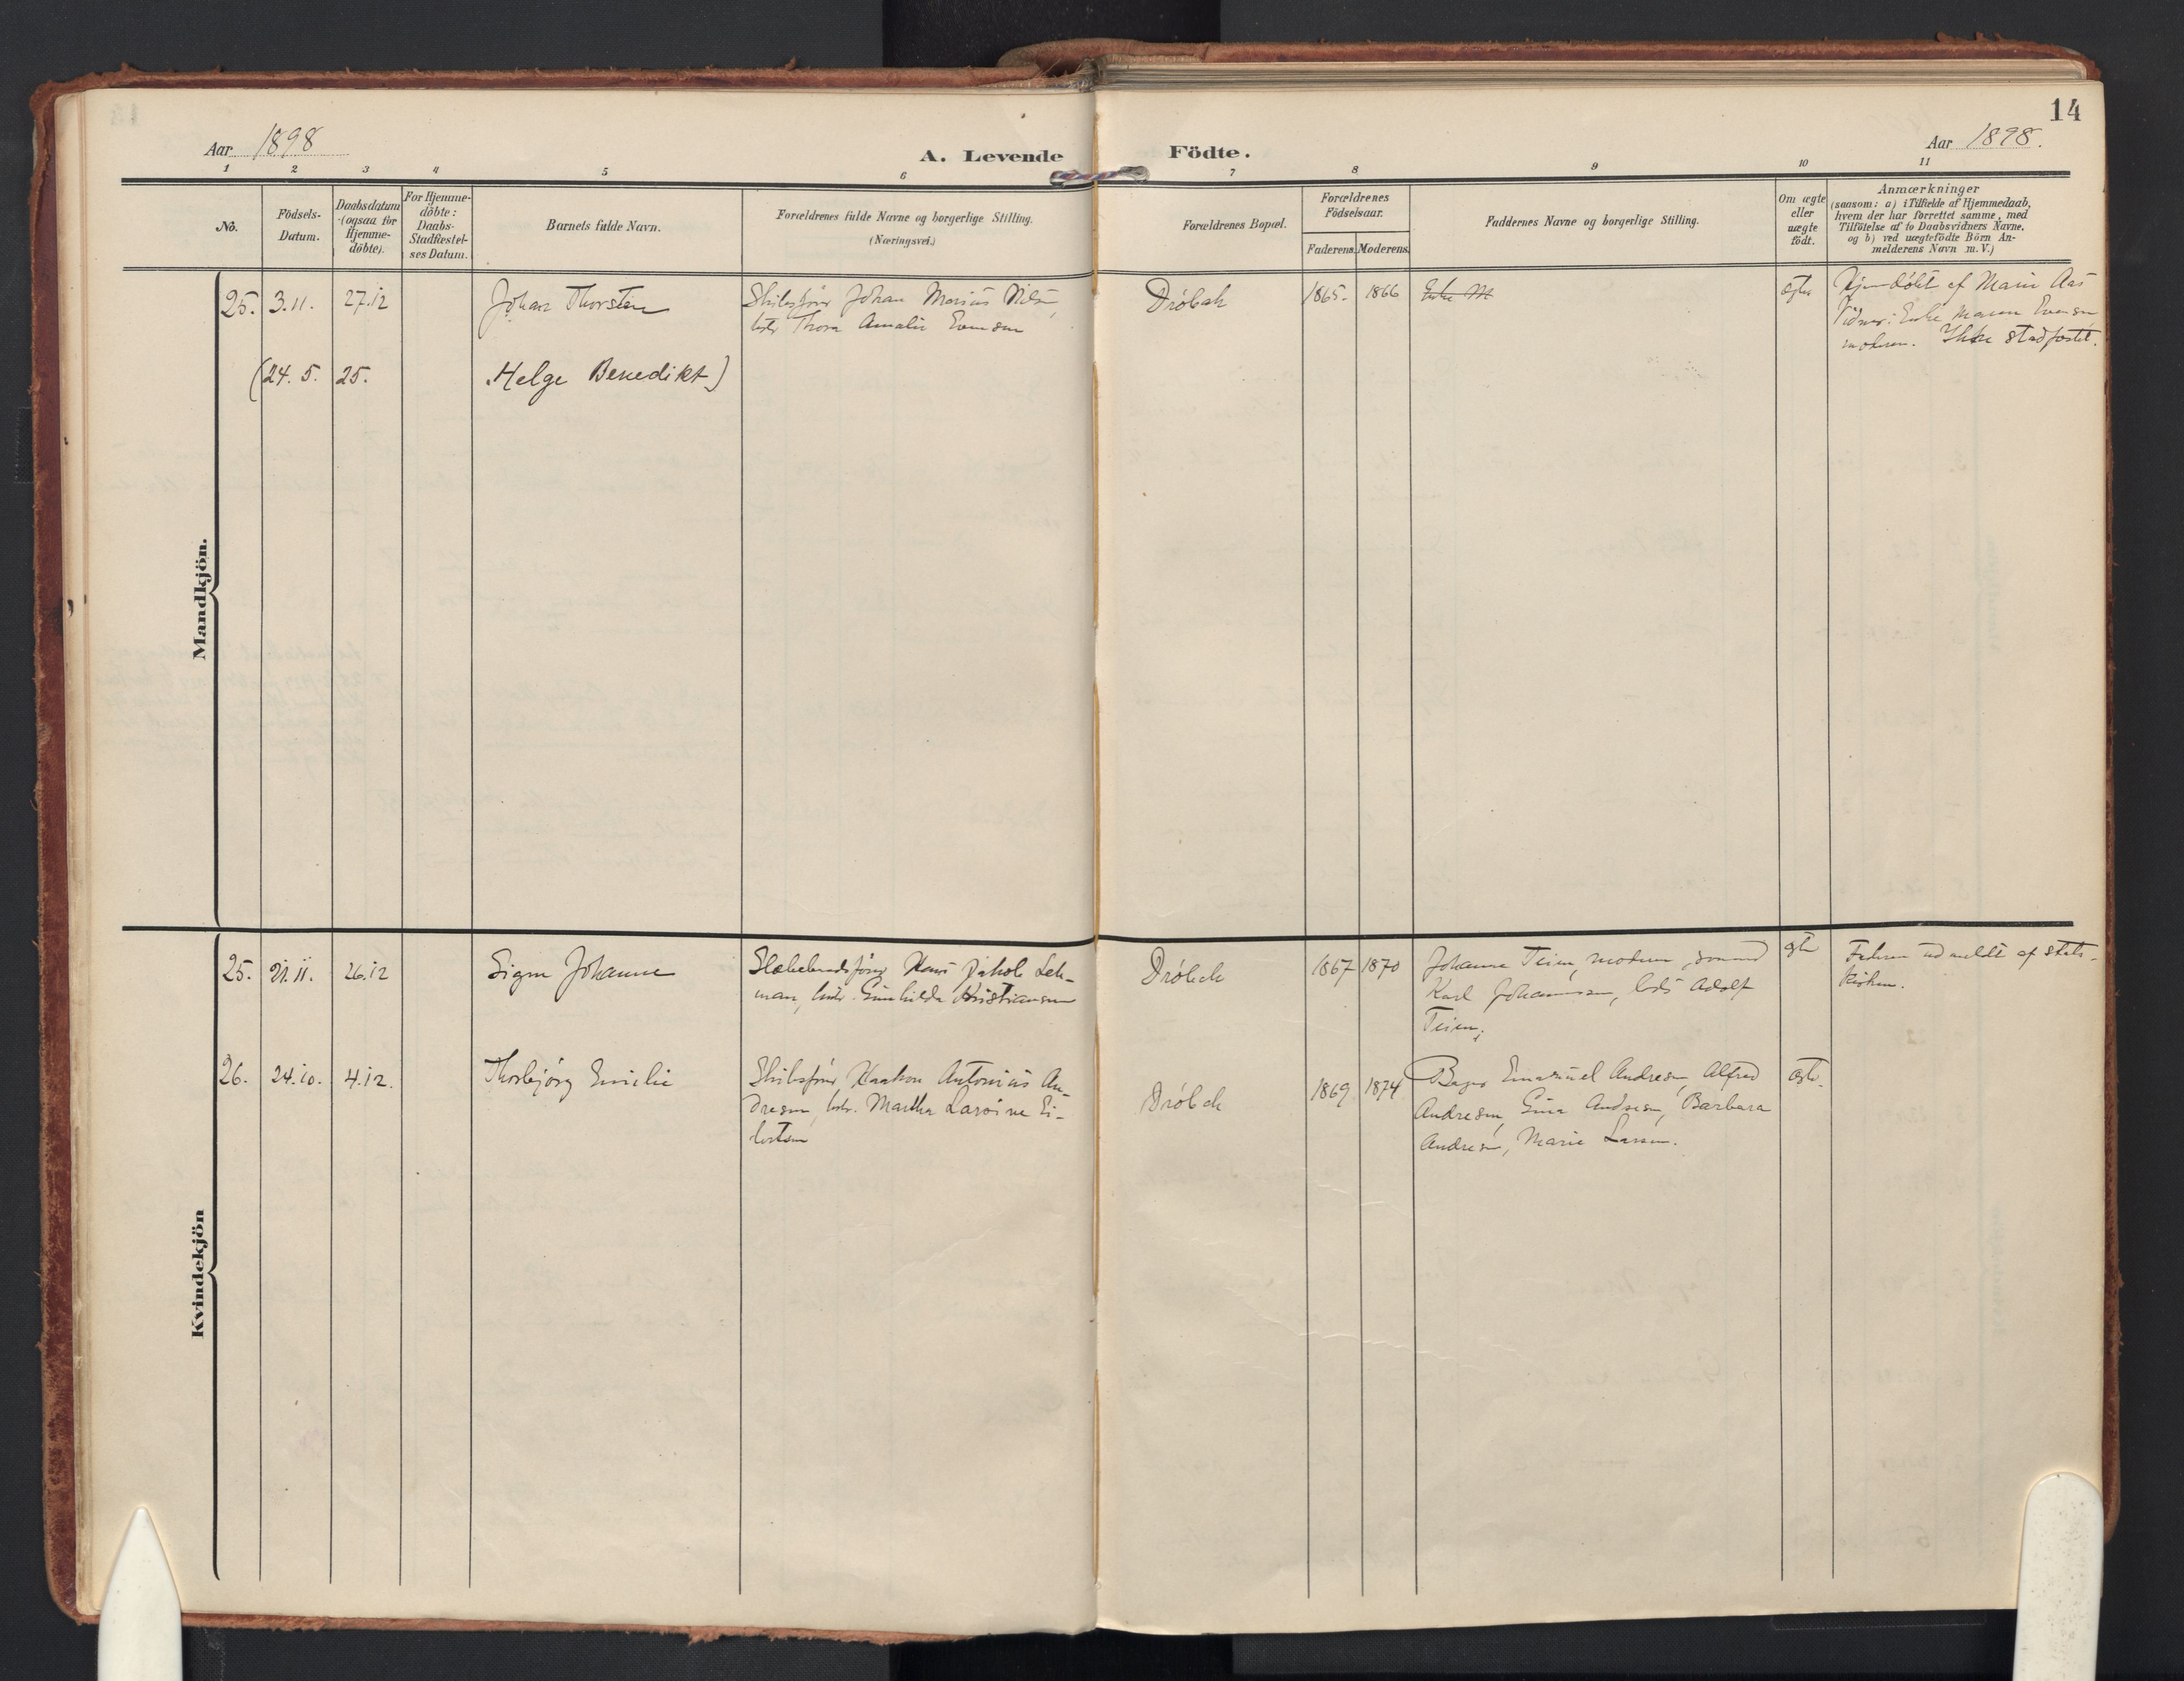 14
Aar 1898
A. Levende Födte.
Aar 1898.
1 2 3 4 5 6 7 8 9 10 11
No.
Födsels-
Datum.
Daabsdatum
(ogsaa for
Hjemme-
döbte).
For Hjemme-
döbte:
Daabs-
Stadfæstel-
ses Datum.
Barnets fulde Navn.
Forældrenes fulde Navne og borgerlige Stilling.
(Næringsvei.)
Forældrenes Bopæl.
Forældrenes
Födselsaar.
Faderens. Moderens.
Faddernes Navne og borgerlige Stilling.
Om ægte
eller
uægte
födt.
Anmærkninger
(saasom: a) i Tilfælde af Hjemmedaab,
hvem der har forrettet samme, med
Tilföielse af to Daabsvidners Navne.
og b) ved uægtefödte Börn An-
melderens Navn m. V.)
Mandkjön.
25. 3.11. 27.12 Johan Thorstein
Skibsförer Johan Marius Nilsen,
hstr Thora Amalie Evensen
Dröbak 1865. 1866 Enke M ægte
Hjemdöbt af Marie Aas
Vidner: Enke Maren Evensen
moderen. Ikke stadfæstet.
(24. 5. 25. Helge Benedikt.)
Kvindekjön
25. 21.11. 26.12 Signe Johanne
Slæbebaadsförer Hans Jakob Leh-
man, hstr. Gunhilda Kristiansen
Dröbak 1867 1870
Johanne Teien, moderen, sömand
Karl Johannessen, lods Adolf
Teien.
ægte
Faderen udmeldt af stats-
kirken.
26. 24.10. 4.12. Thorbjörg Emilie
Skibsförer Haakon Antonius An-
dresen, hstr. Martha Lavine Ei-
lertsen
Dröbak 1869 1874
Bager Emanuel Andresen, Alfred
Andresen, Gina Andresen, Barbara
Andresen, Marie Larsen.
ægte.